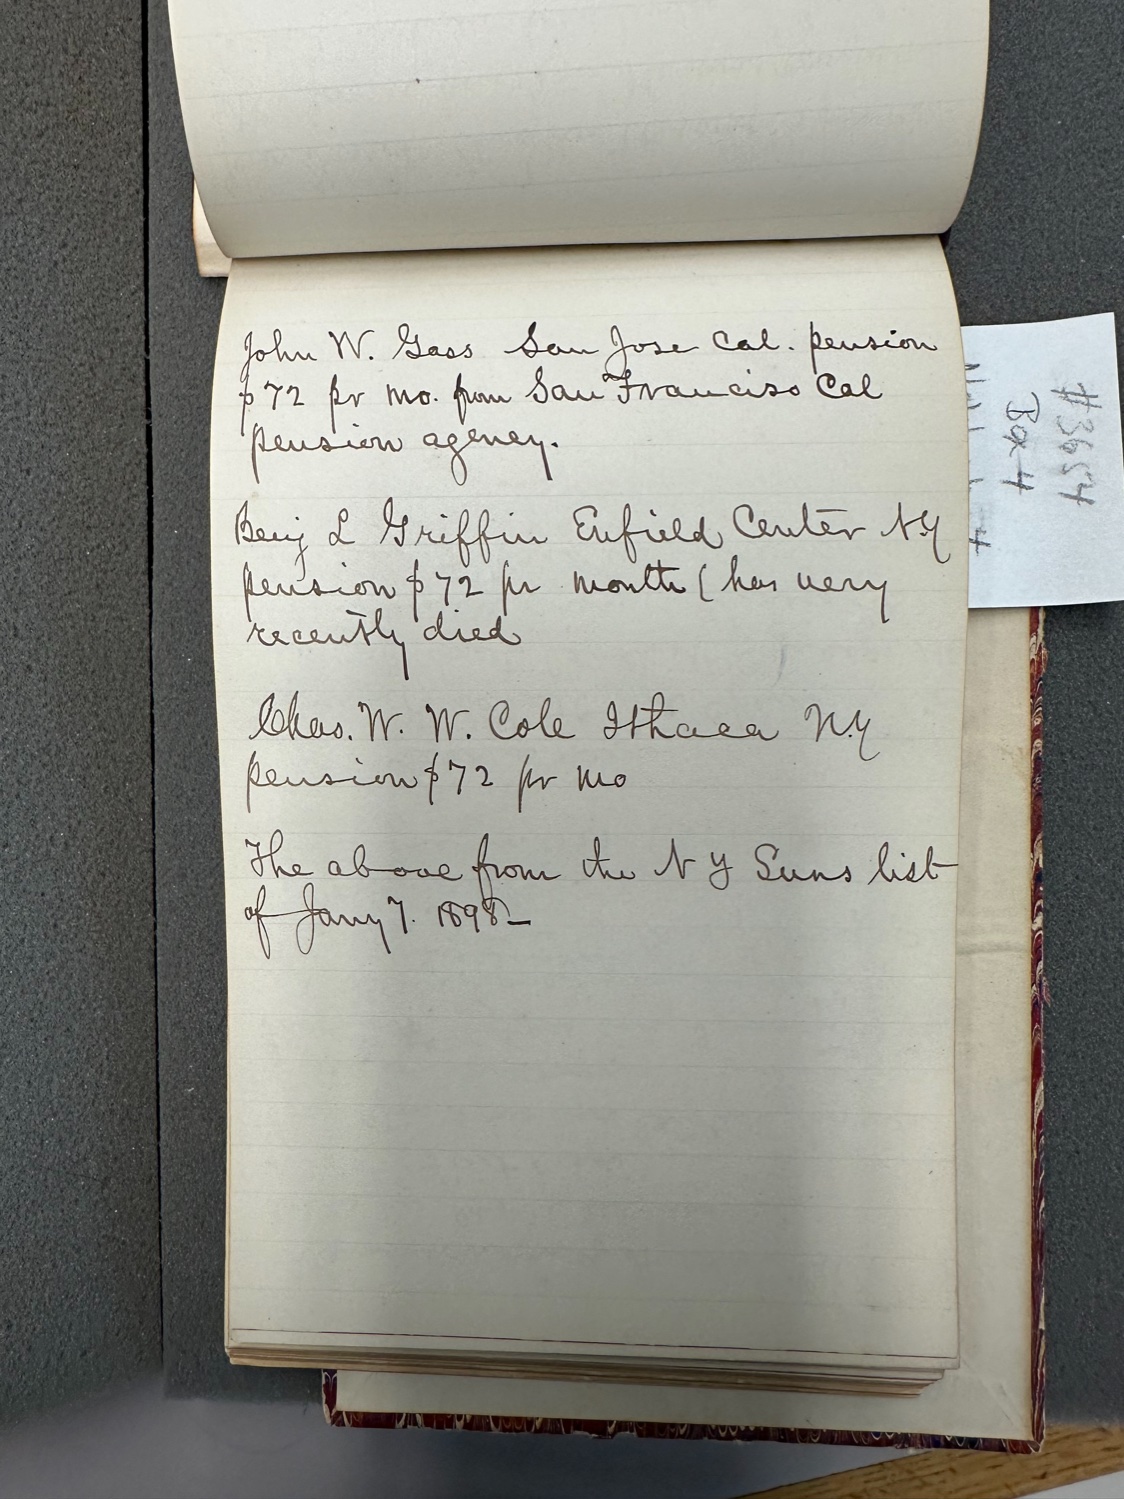 John W. Gass San Jose Cal. pension
$72 pr mo. from San Franciso Cal
pension agency.
Benj L Griffin Enfield Center NY
pension $72 pr month (has very
recently died
Chas. W. W. Cole Ithaca N.Y
pension $72 pr mo
The above from the N Y Suns list
of Jany 7. 1898—
#3654
Box 4